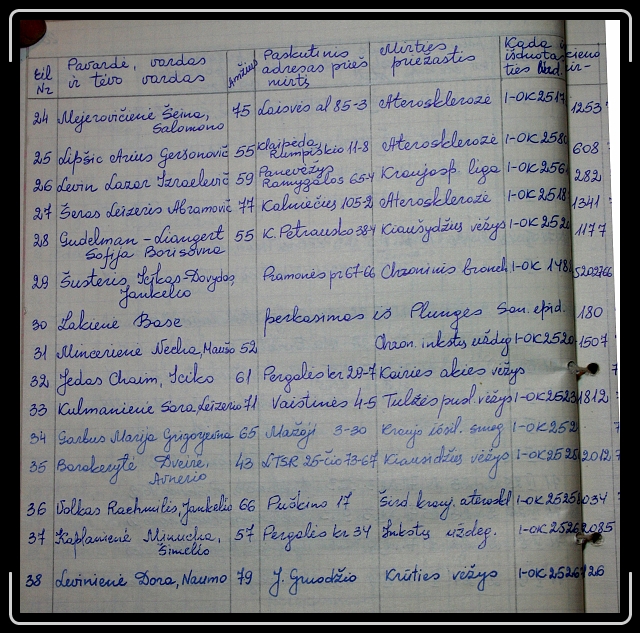 Eil Nr Pavardė, vardas ir tėvo vardas Amžius Paskutinis adresas prieš mirtį Mirties priežastis Kada išduota
24 Mejerovičienė Šeina, Salomono 75 Laisvės al 85-3 Aterosklerozė I-OK 251 1253
25 Lipšic Arius Gersonovič 55 Klaipėda Rumpiškio 11-8 Aterosklerozė I-OK 258 608
26 Levin Lazar Izraelevič 59 Panevėžys Ramygalos 65-4 Kraujosp. liga I-OK 256 282
27 Šeras Leizeris Abramovič 77 Kalniečių 105-2 Aterosklerozė I-OK 2518 1341
28 Gudelman-Liangert Sofija Borisovna 55 K. Petrausko 38-4 Kiaušydžių vėžys I-OK 252 1177
29 Šusteris Ickas-Dovydas, Jankelio Pramonės pr 67-66 Chroninis bronch I-OK 148 5202766
30 Lakienė Base perkasimas iš Plungės San. epid. 180
31 Mincerienė Necha, Maušo 52 Chron. inkstų uždeg I-OK 2520 1507
32 Jedas Chaim, Iciko 61 Pergalės kr 29-7 Kairies akies vėžys
33 Kulmanienė Sora, Leizerio 71 Vaistinės 4-5 Tulžės pusl. vėžys I-OK 2523 1812
34 Garbus Marija Grigoryevna 65 Mažoji 3-30 Kraujo išsil. smeg I-OK 252
35 Dveirė, Avnerio 43 LTSR 25-čio 73-67 Kiausidžių vėžys I-OK 252 2012
36 Volkas Rachmilis, Jankelio 66 Puškino 17 Šird krauj. ateroskl I-OK 2525 034
37 Kaplanienė Minucha, Simelio 57 Pergalės kr 34 Inkstų uždeg. I-OK 2526 2085
38 Levinienė Dora, Naumo 79 J. Gruodžio Krūties vėžys I-OK 2526 126